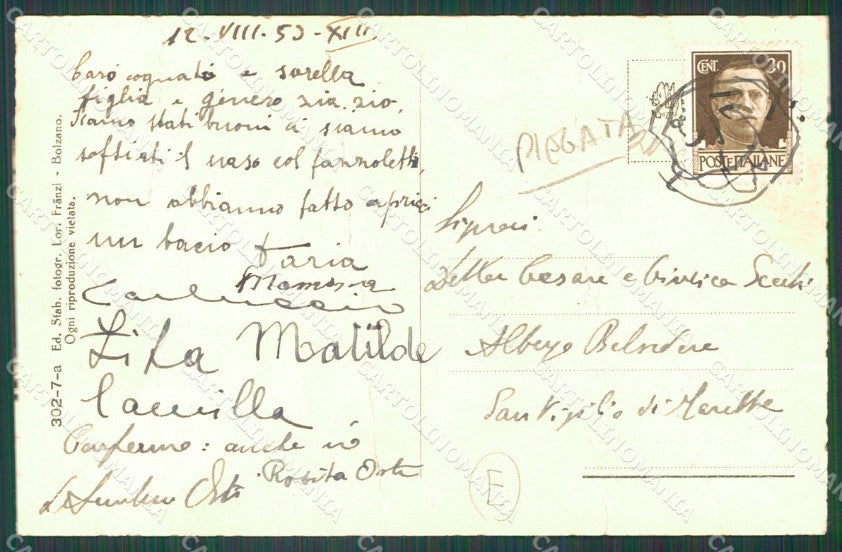 12-VIII-53-XIII
Caro cognato e sorella
figlia e genero zia zio.
Siamo stati buoni ci siamo
soffiati il naso col fazzoletti,
non abbiamo fatto capricci
un bacio Daria
Mamma
Carluccio
Lila Matilde
Camilla
Confermo: anche io
Rosita Osti
Osti
302-7-a Ed. Stab. fotogr. Lor. Fränzl - Bolzano.
Ogni riproduzione vietata.
PIEGATA
CENT. 30
POSTE ITALIANE
Signori
Cesare e
Albergo Belvedere
San Vigilio di Marebbe
E
CARTOLINOMANIA